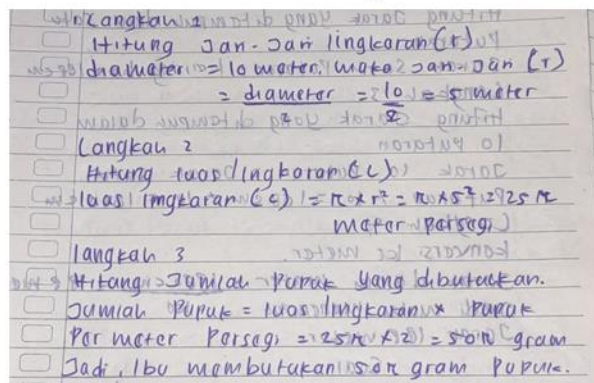 Langkah 1
Hitung Jari-Jari lingkaran (r)
diameter = 10 meter, maka Jari-Jari (r)
= diameter/2 = 10/2 = 5 meter
Langkah 2
Hitung luas lingkaran (L)
luas lingkaran (L) = π x r² = π x 5² = 25 π
meter persegi
langkah 3
Hitung Jumlah Pupuk yang dibutuhkan.
Jumlah Pupuk = luas lingkaran x Pupuk
Per meter Persegi = 25π x 2 = 50π gram
Jadi, Ibu membutukan 50π gram Pupuk.